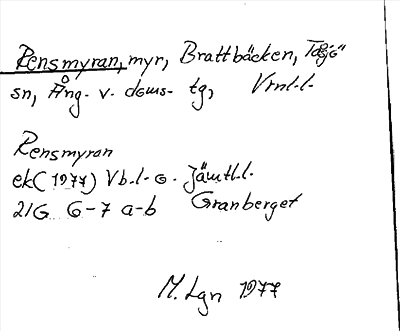 Rensmyran, myr, Brattbäcken, Tåsjö
sn, Ång. v. doms- tg, Vrnl.l.
Rensmyran
ek (1977) Vb.l. o. Jämtl.l.
21G 6-7 a-b Granberget
M. Lgn 1977